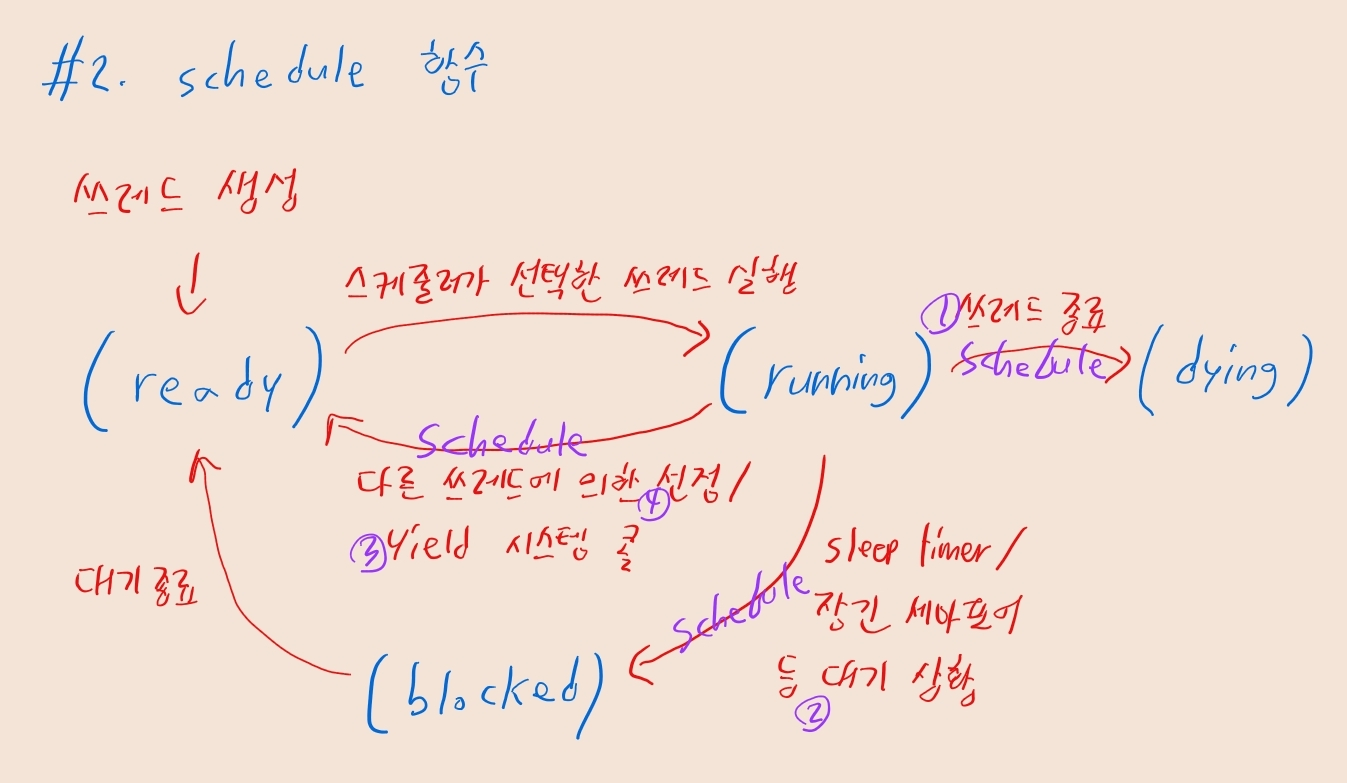 #2. schedule 함수
쓰레드 생성
스케줄러가 선택한 쓰레드 실행
① 쓰레드 종료
schedule
(ready)
(running)
(dying)
schedule
다른 쓰레드에 의한 선점/
④
③ yield 시스템 콜
sleep timer/
장긴 세마포어
등 대기 상황
②
schedule
대기 종료
(blocked)